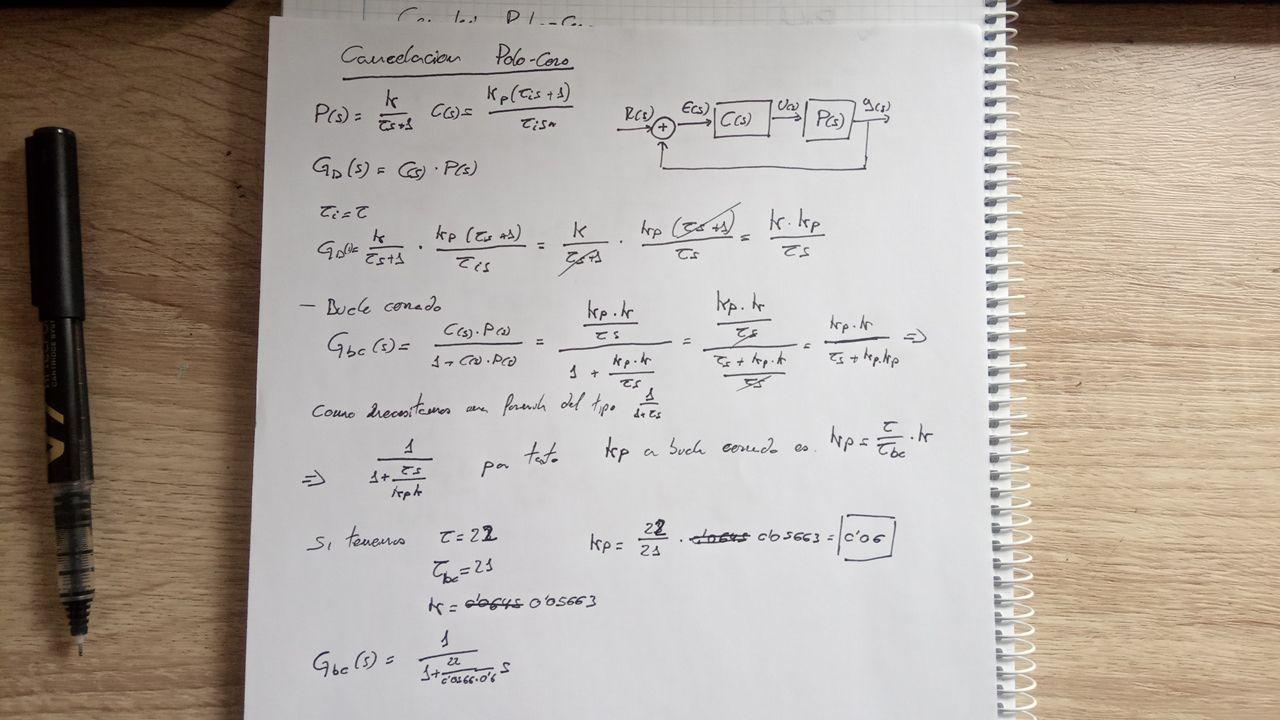 Cancelacion Polo-Cero
P(s) = k/(τs+1) C(s) = kp(τis+1)/(τis)
R(s) + E(s) C(s) U(s) P(s) y(s)
GD(s) = C(s) · P(s)
τi = τ
GD(s) = k/(τs+1) · kp(τs+1)/(τis) = k/(τs+1) · kp(τs+1)/(τs) = k·kp/(τs)
- Bucle cerrado
Gbc(s) = C(s)·P(s)/(1+C(s)·P(s)) = (kp·k/(τs))/(1 + kp·k/(τs)) = (kp·k/(τs))/((τs + kp·k)/(τs)) = kp·k/(τs + kp·kp) ⇒
Como necesitamos una formula del tipo 1/(1+τs)
⇒ 1/(1 + τs/(kp k)) por tato kp a bucle cerrado es. kp = τ/τbc · k
Si tenemos τ = 22 kp = 22/21 · 0'0645 0'05663 = 0'06
τbc = 21
k = 0'0645 0'05663
Gbc(s) = 1/(1 + 22/(0'0566·0'6) s)